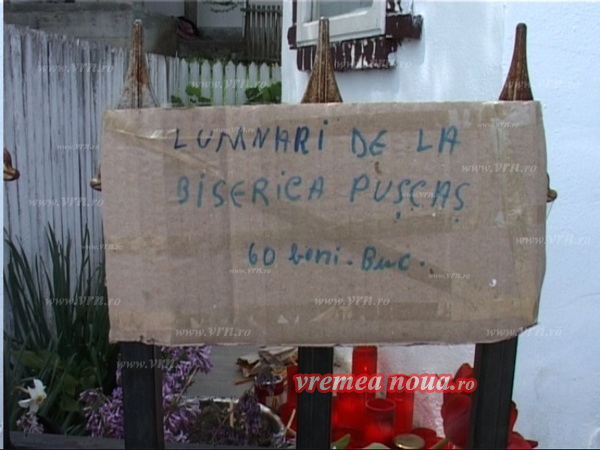 LUMNARI DE LA
BISERICA PUȘCAȘ
60 bani. Buc.
vremea noua.ro
www.VRN.ro